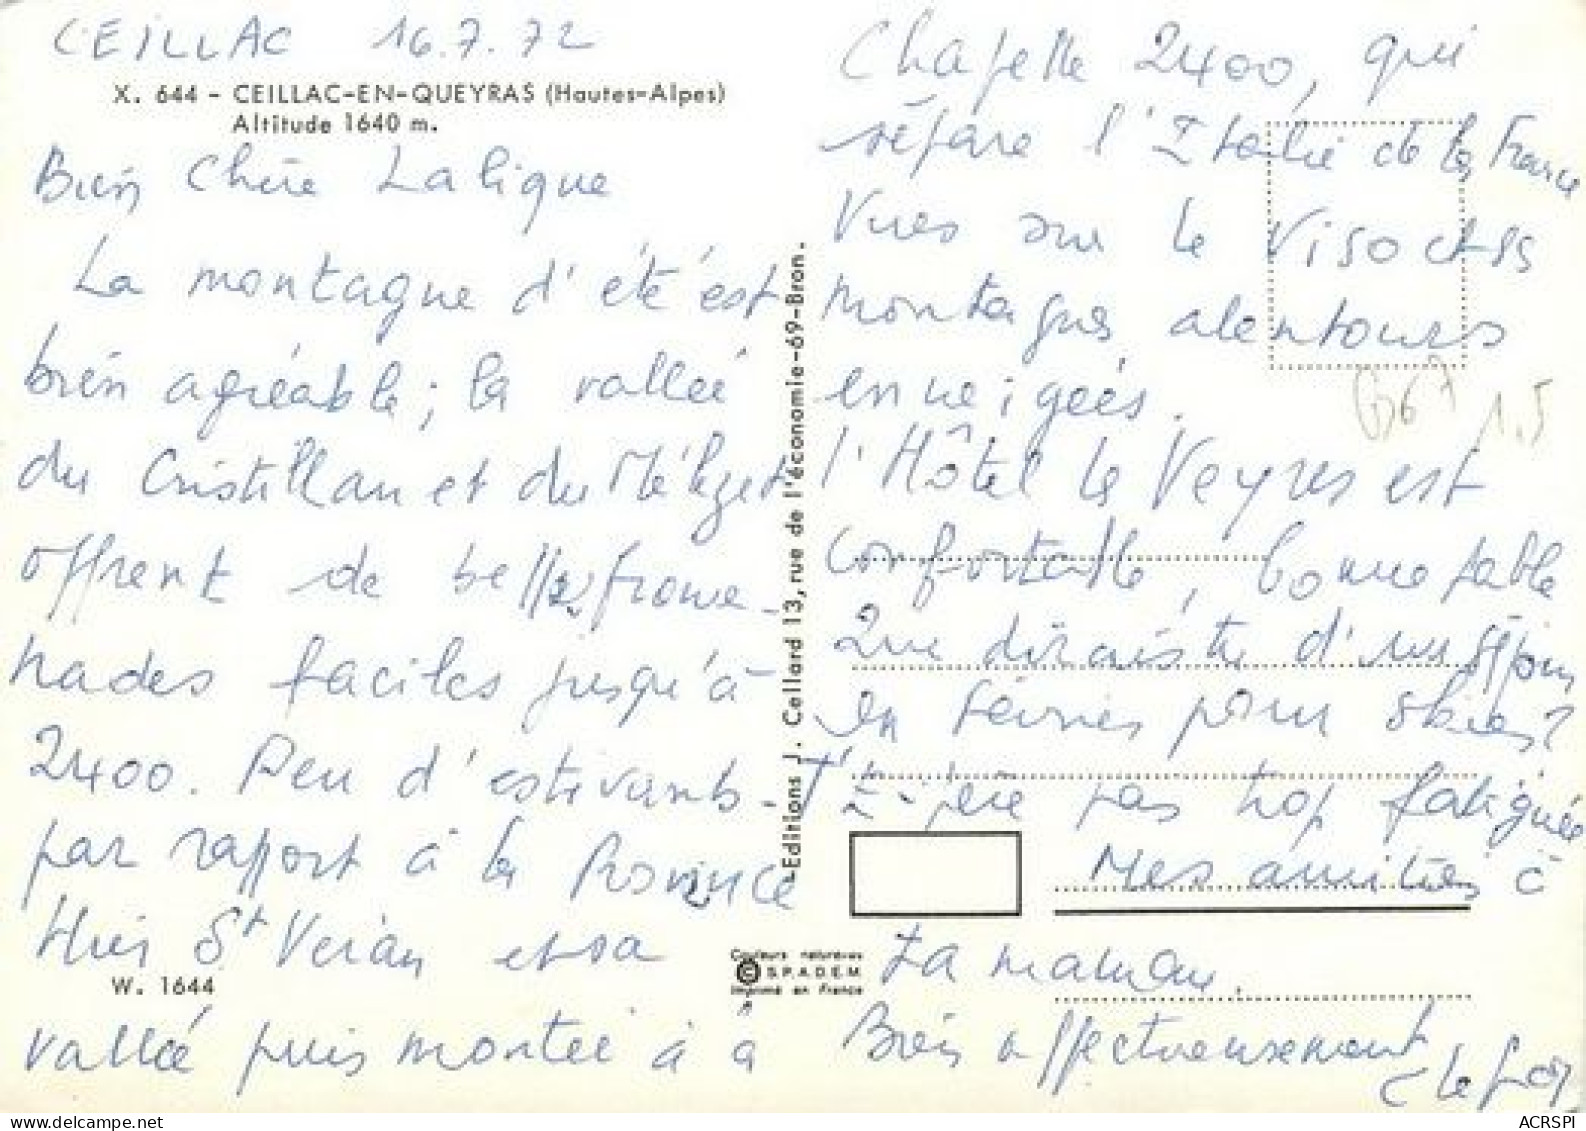 CEILLAC 16.7.72
X. 644 - CEILLAC-EN-QUEYRAS (Hautes-Alpes)
Altitude 1640 m.
Bien Chère Lalique
La montagne d'été est
bien agréable ; la vallée
du Cristillan et du Mélezet
offrent de belles prome-
nades faciles jusqu'à
2400. Peu d'estivants
par rapport à la Province
Hier St Véran et sa
vallée puis montée à
W. 1644
Editions J. Cellard 13, rue de l'économie-69-Bron.
Couleurs naturelles
© S.P.A.D.E.M.
Imprimé en France
Chapelle 2400, qui
sépare l'Italie de la France
Vues sur le Viso et les
montagnes alentours
enneigées.
l'Hôtel le Veyres est
confortable, bonne table
Que dirais tu d'un séjour
en Février pour skier?
T'es-père pas trop fatiguée
Mes amitiés à
ta maman.
Bien affectueusement
G367 1.5
ACRSPI